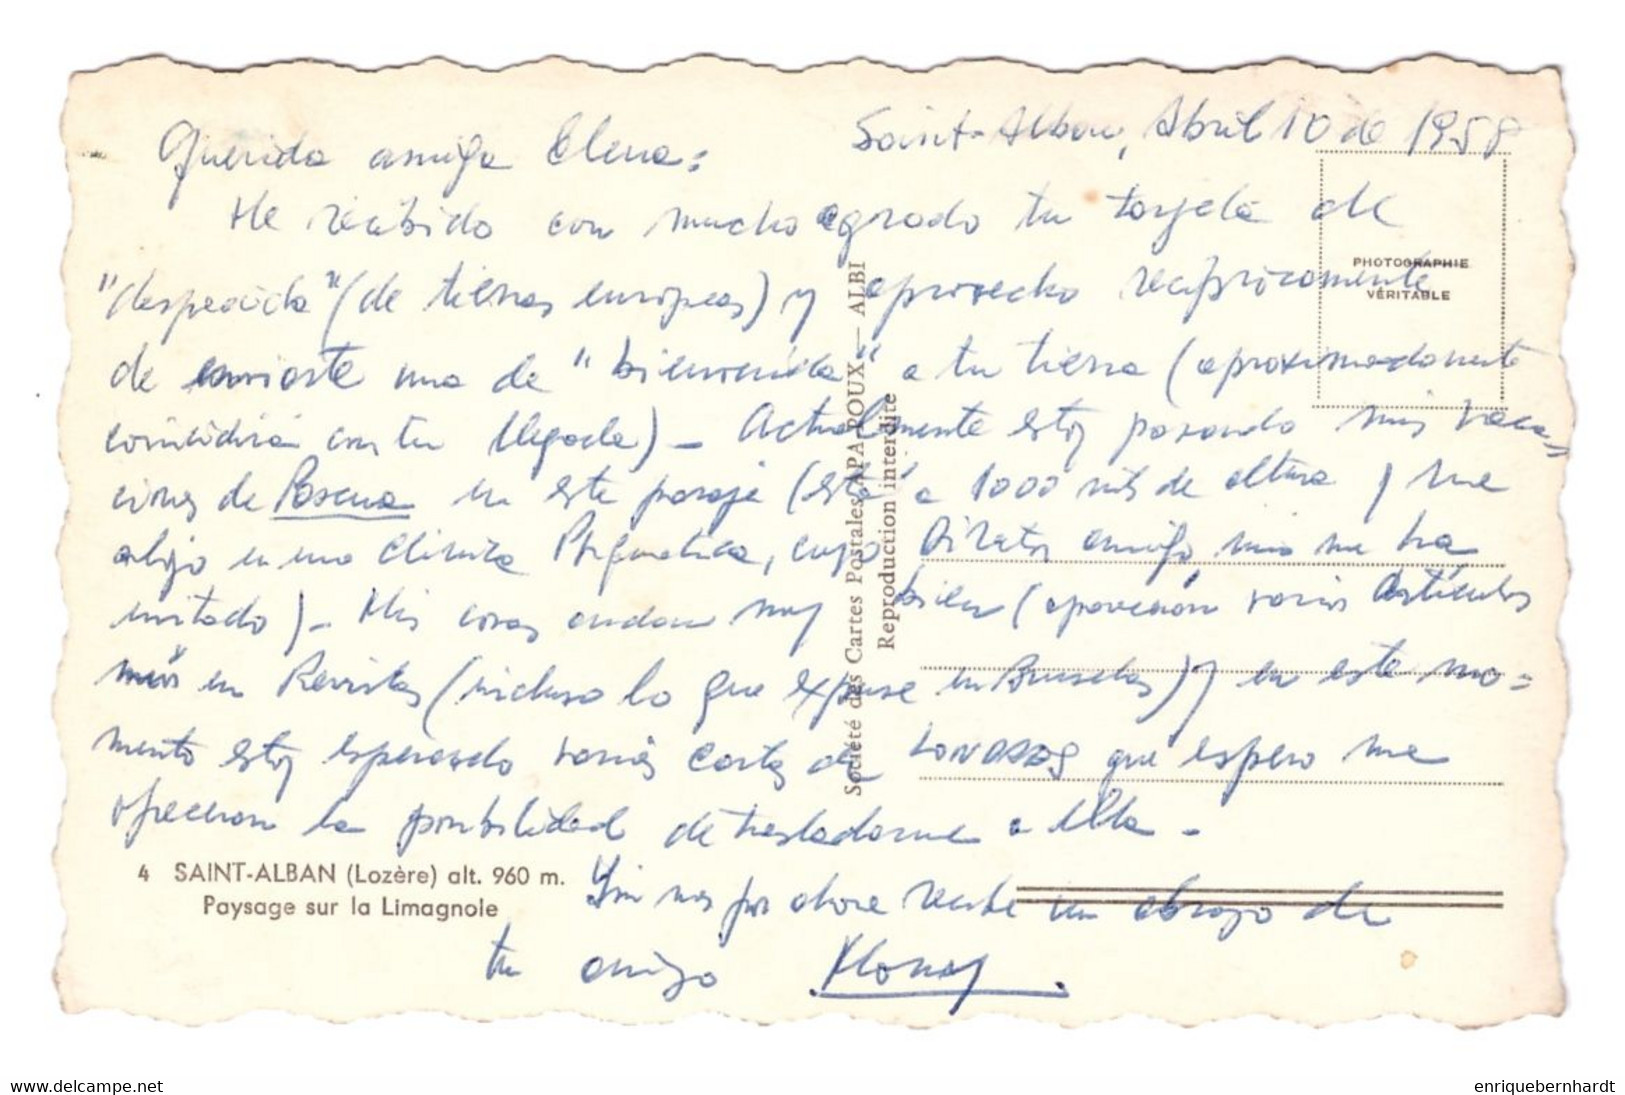 Saint-Alban, Abril 10 de 1958
Querida amiga Elena:
He recibido con mucho agrado tu tarjeta de
"despedida" (de tierras europeas) y aprovecho recíprocamente
de enviarte una de "bienvenida" a tu tierra (aproximadamente
coincidirá con tu llegada) - Actualmente estoy pasando mis vaca=
ciones de Pascua en este paraje (está a 1000 mts de altura y me
alojo en una Clínica Psiquiátrica, cuyo Director amigo mío me ha
invitado) - Mis cosas andan muy bien (aparecieron varios artículos
míos en Revistas (incluso lo que expuse en Bruselas) y en este mo=
mento estoy esperando varias cartas de que espero me
ofrezcan la posibilidad de trasladarme a ella -
Sin más por ahora recibe un abrazo de
tu amigo
PHOTOGRAPHIE
VÉRITABLE
Société des Cartes Postales APA-POUX - ALBI
Reproduction interdite
4 SAINT-ALBAN (Lozère) alt. 960 m.
Paysage sur la Limagnole
www.delcampe.net
enriquebernhardt